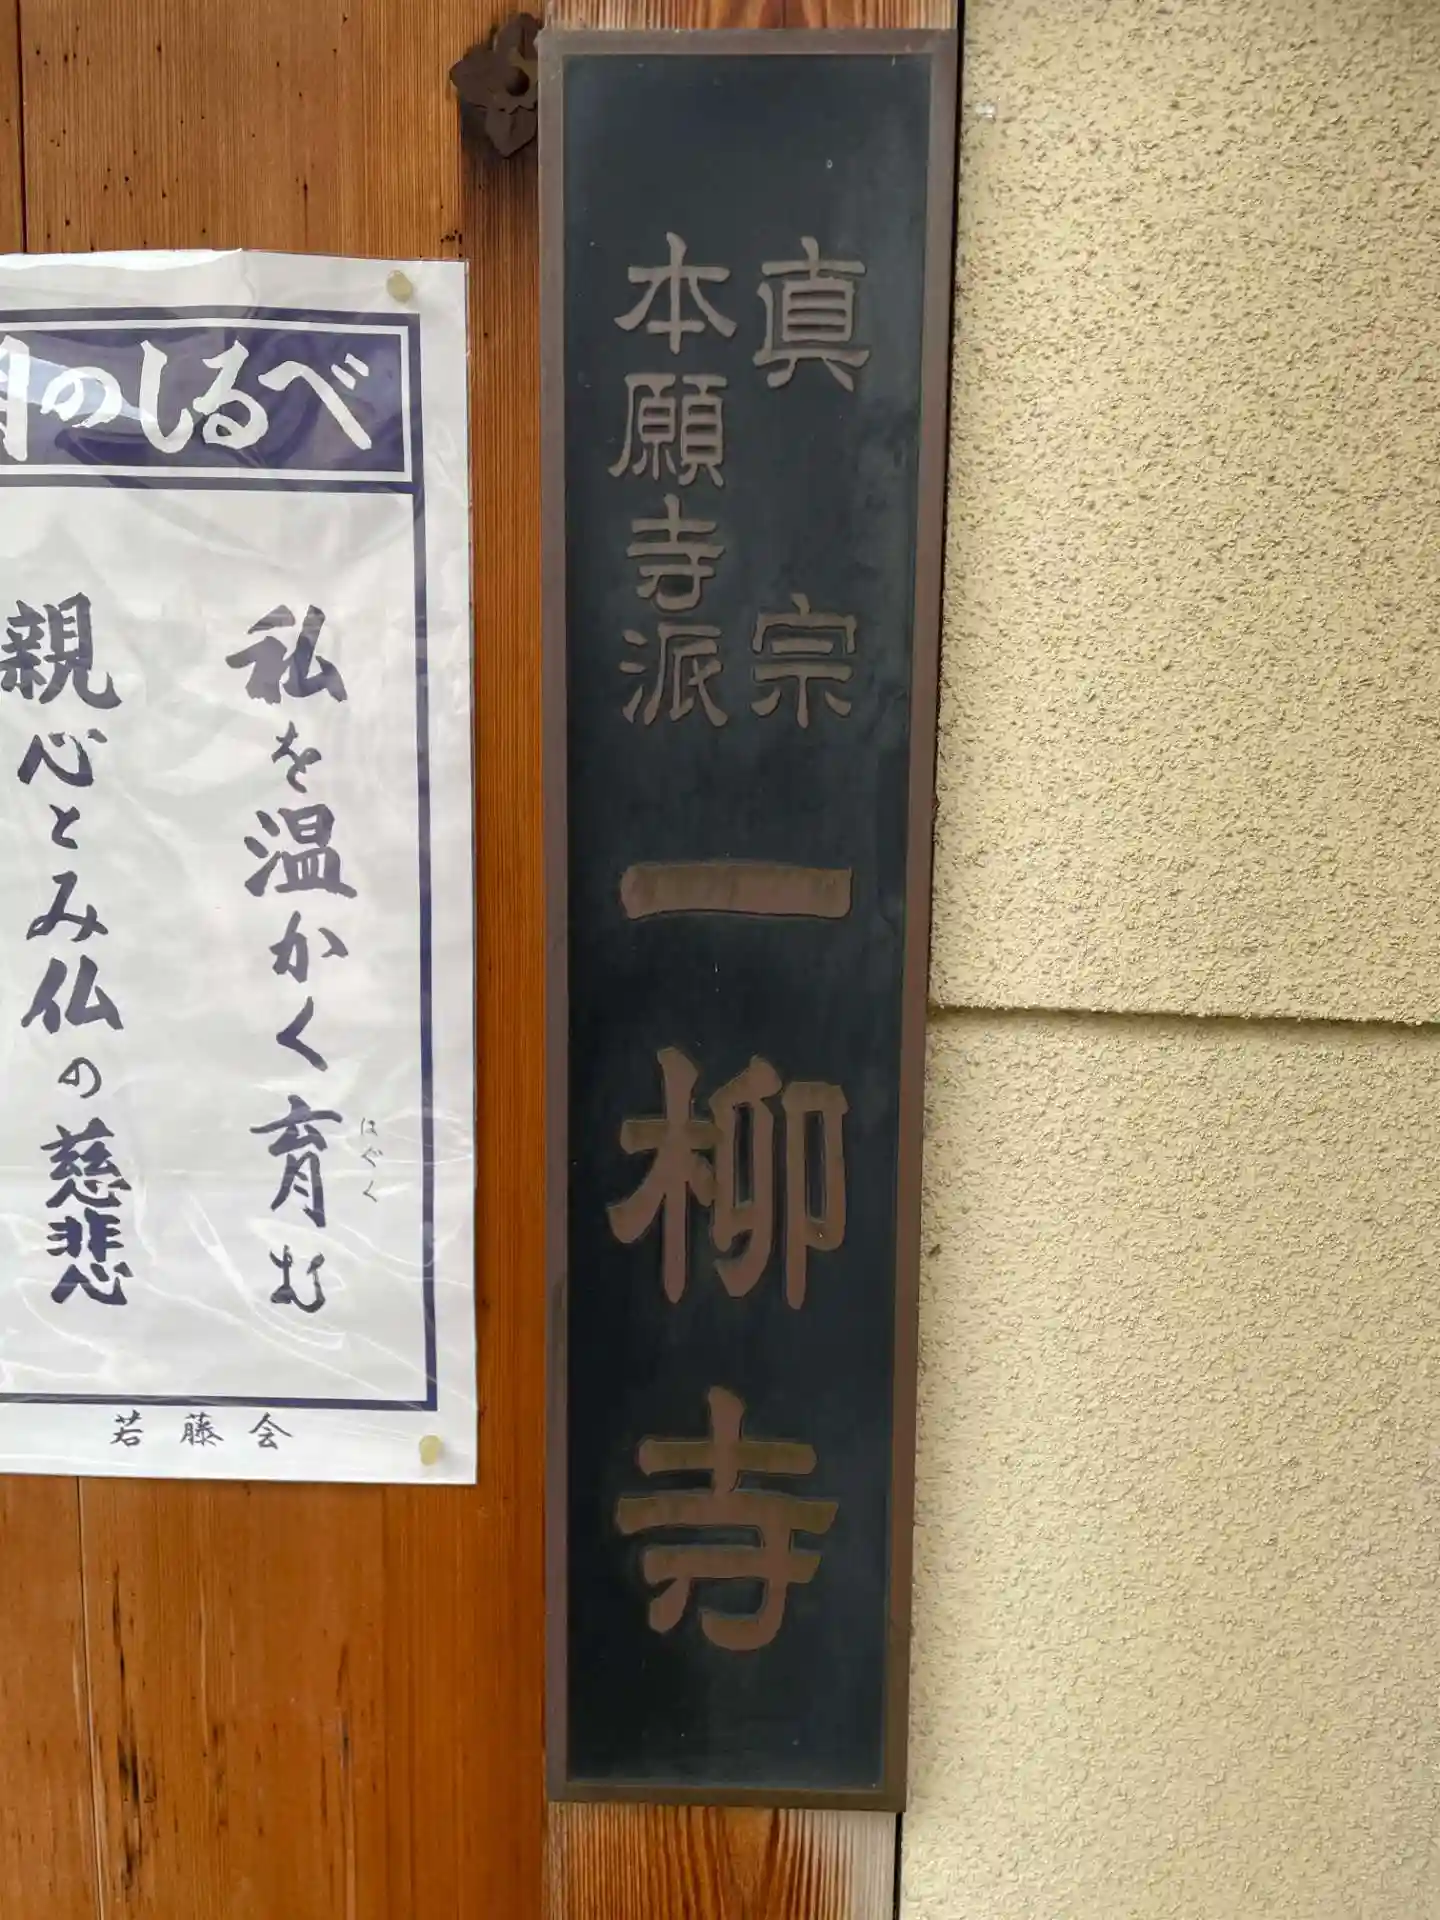 真宗
本願寺派
一柳寺
月のしるべ
私を温かく育む
はぐく
親心とみ仏の慈悲
若藤会